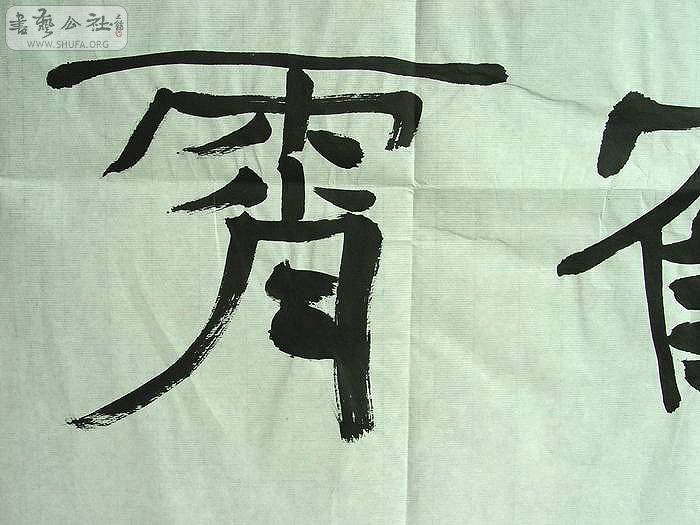 書藝公社
WWW.SHUFA.ORG
霄